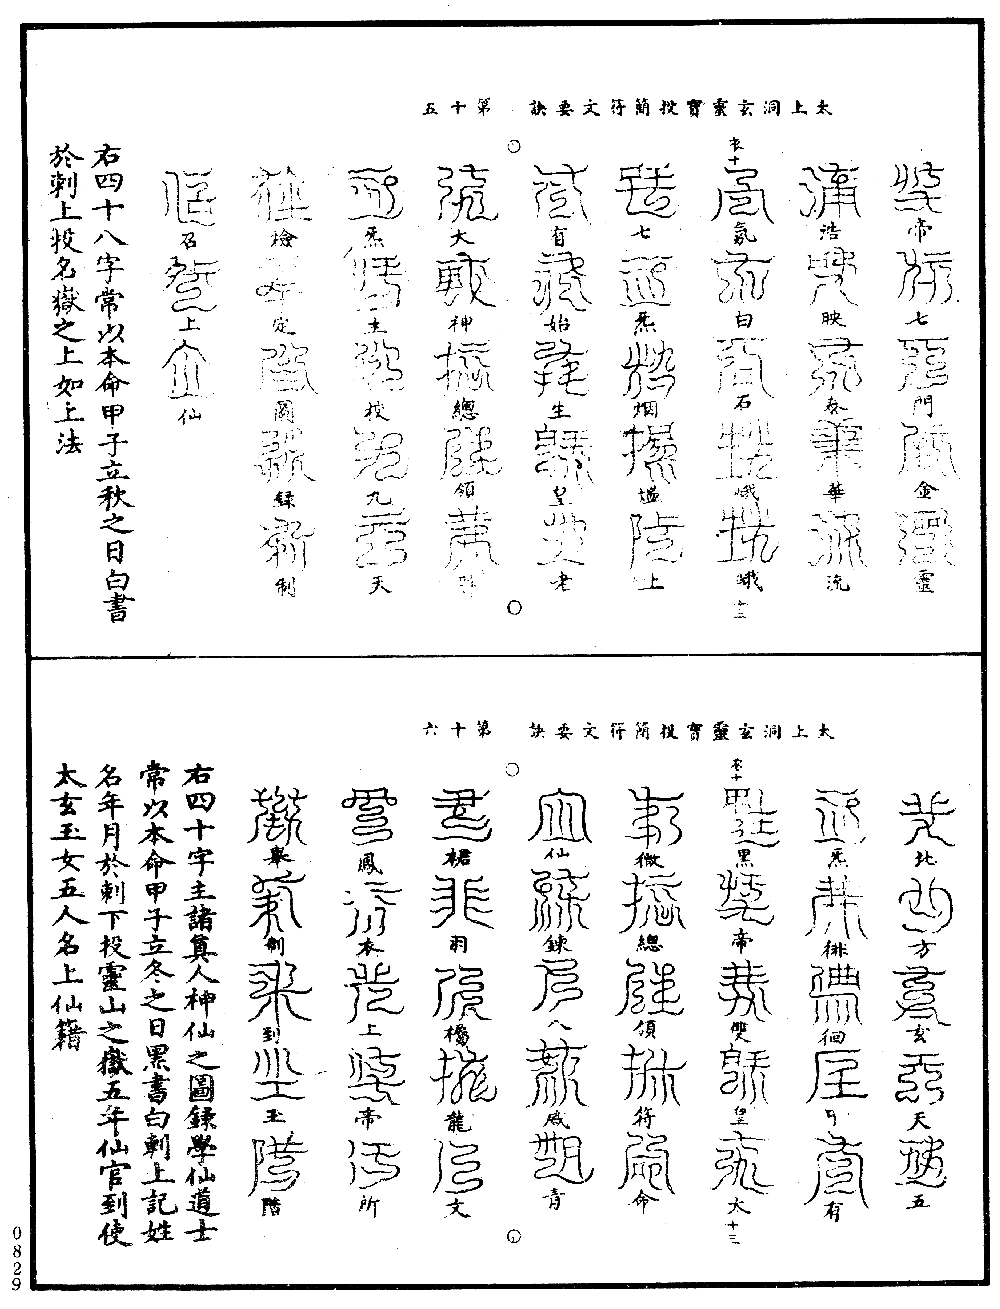 太上洞玄靈寶投簡符文要訣　第十五
帝七門金靈
浩映泰華流
衣十
氣白石峨峨
十三
七炁烟熅上
有始生皇老
大神總領
炁主校九天
檢定圖錄制
召上仙
右四十八字常以本命甲子立秋之日白書
於刺上投名嶽之上如上法
太上洞玄靈寶投簡符文要訣　第十六
北方玄天五
炁徘徊有
衣十
黑帝雙皇太
十三
微總領符命
仙錬八威青
裙羽龍文
鳳衣上帝所
舉制到玉階
右四十字主諸真人神仙之圖錄學仙道士
常以本命甲子立冬之日黑書白刺上記姓
名年月於刺下投靈山之嶽五年仙官到使
太玄玉女五人名上仙籍
0829